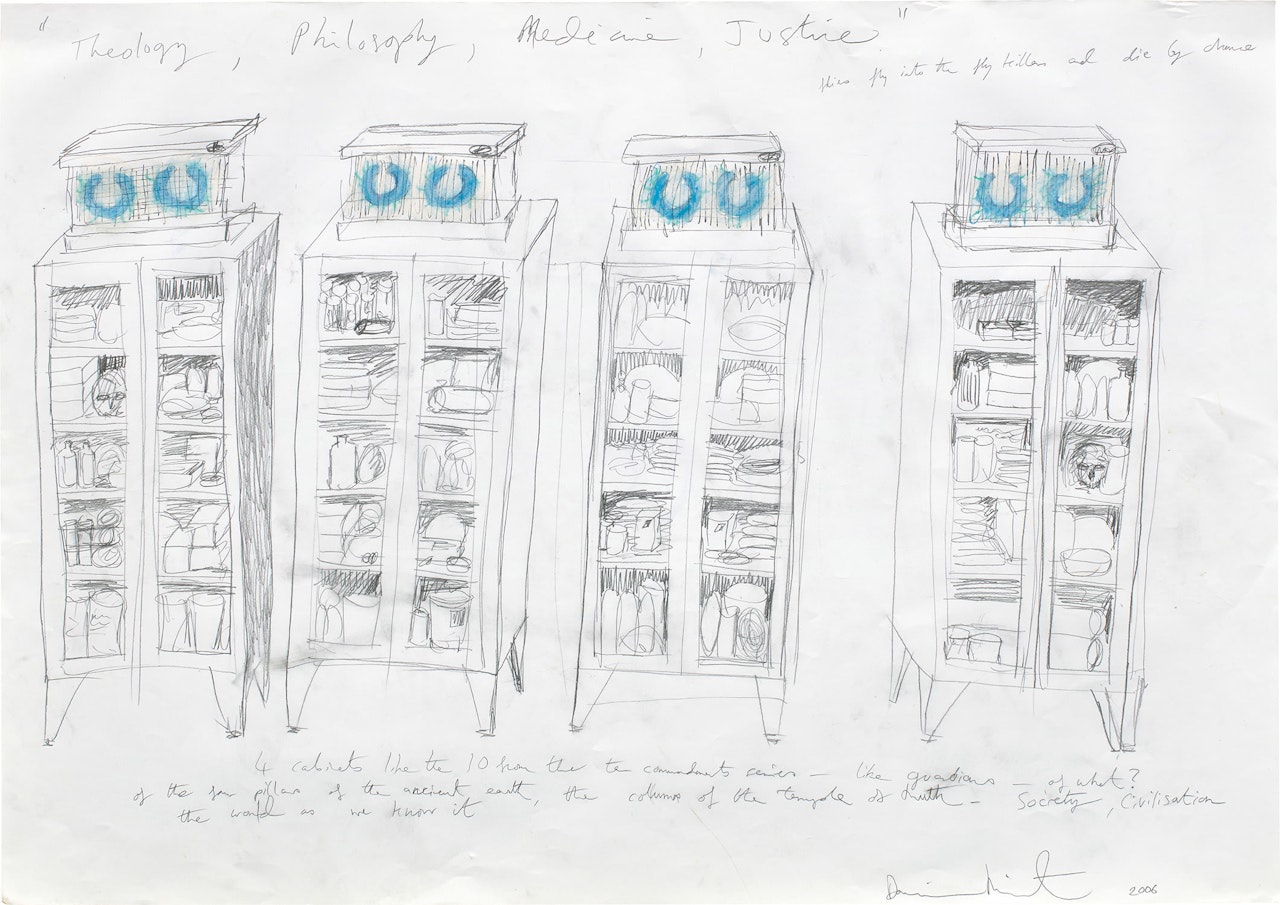 "Theology, Philosophy, Medicine, Justice"
flies fly into the fly killers and die by chance
4 cabinets like the 10 from the ten commandments series – like guardians – of what?
of the four pillars of the ancient earth, the columns of the temple of truth – Society, Civilisation
the world as we know it
Damien Hirst 2006